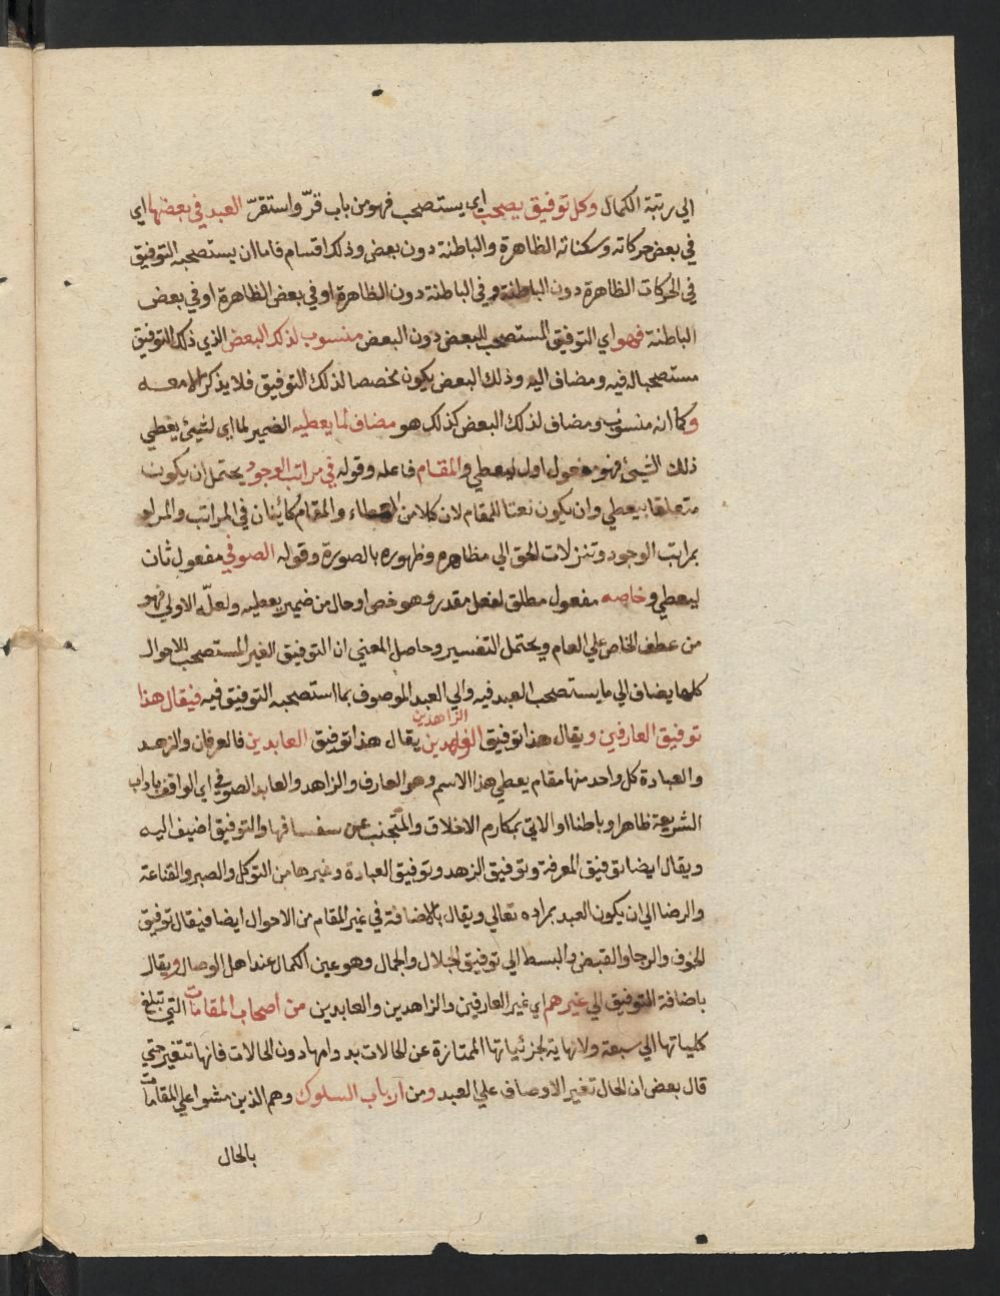 الي رتبة الكمال وكل توفيق يصحب اي يستصحب فهو من باب قرّ واستقرّ العبد في بعضها اي
في بعض حركاته وسكناته الظاهرة والباطنة دون بعض وذلك اقسام فاما ان يستصحبه التوفيق
في الحركات الظاهرة دون الباطنة و في الباطنة دون الظاهرة او في بعض الظاهرة او في بعض
الباطنة فهو اي التوفيق المستصحب للبعض دون البعض منسوب لذلك البعض الذي ذلك التوفيق
مستصحبا له فيه ومضاف اليه وذلك البعض يكون مخصصا لذلك التوفيق فلا يذكر الا معه
وكما انه منسوب ومضاف لذلك البعض كذلك هو مضاف لما يعطيه الضمير لما اي لشيئ يعطي
ذلك الشيئ فهو مفعول اول ليعطي والمقام فاعله وقوله في مراتب الوجود يحتمل ان يكون
متعلقا بيعطي وان يكون نعتا للمقام لان كلا من العطاء والمقام كائنان في المراتب والمراد
بمراتب الوجود وتنزلات الحق الي مظاهره وظهوره بالصورة وقوله الصوفي مفعول ثان
ليعطي وخاصه مفعول مطلق لفعل مقدر وهو خص او حال من ضمير يعطيه ولعلّه الاولي فهو
من عطف الخاص علي العام ويحتمل التفسير وحاصل المعني ان التوفيق الغير المستصحب للاحوال
كلها يضاف الي ما يستصحب العبد فيه والي العبد الموصوف بما استصحبه التوفيق فيه فيقال هذا
توفيق العارفين ويقال هذا توفيق الزاهدين يقال هذا توفيق العابدين فالعرفان والزهد
والعبادة كل واحد منها مقام يعطي هذا الاسم وهو العارف والزاهد والعابد الصوفي اي الواقف باداب
الشريعة ظاهرا وباطنا او الاتي بمكارم الاخلاق والمتجنب عن سفسافها والتوفيق اضيف اليه
ويقال ايضا توفيق المعرفة وتوفيق الزهد وتوفيق العبادة وغيرها من التوكل والصبر والقناعة
والرضا الي ان يكون العبد بمراده تعالي ويقال بالاضافة في غير المقام من الاحوال ايضا فيقال توفيق
الخوف والرجا والقبض والبسط الي توفيق الجلال والجمال وهو عين الكمال عند اهل الوصال ويقال
باضافة التوفيق الي غيرهم اي غير العارفين والزاهدين والعابدين من اصحاب المقامات التي تبلغ
كلياتها الي سبعة ولا نهاية لجزئياتها الممتازة عن الحالات بدوامها دون الحالات فانها تتغير حتي
قال بعض ان الحال تغير الاوصاف علي العبد ومن ارباب السلوك وهم الذين مشوا علي المقامات
بالحال